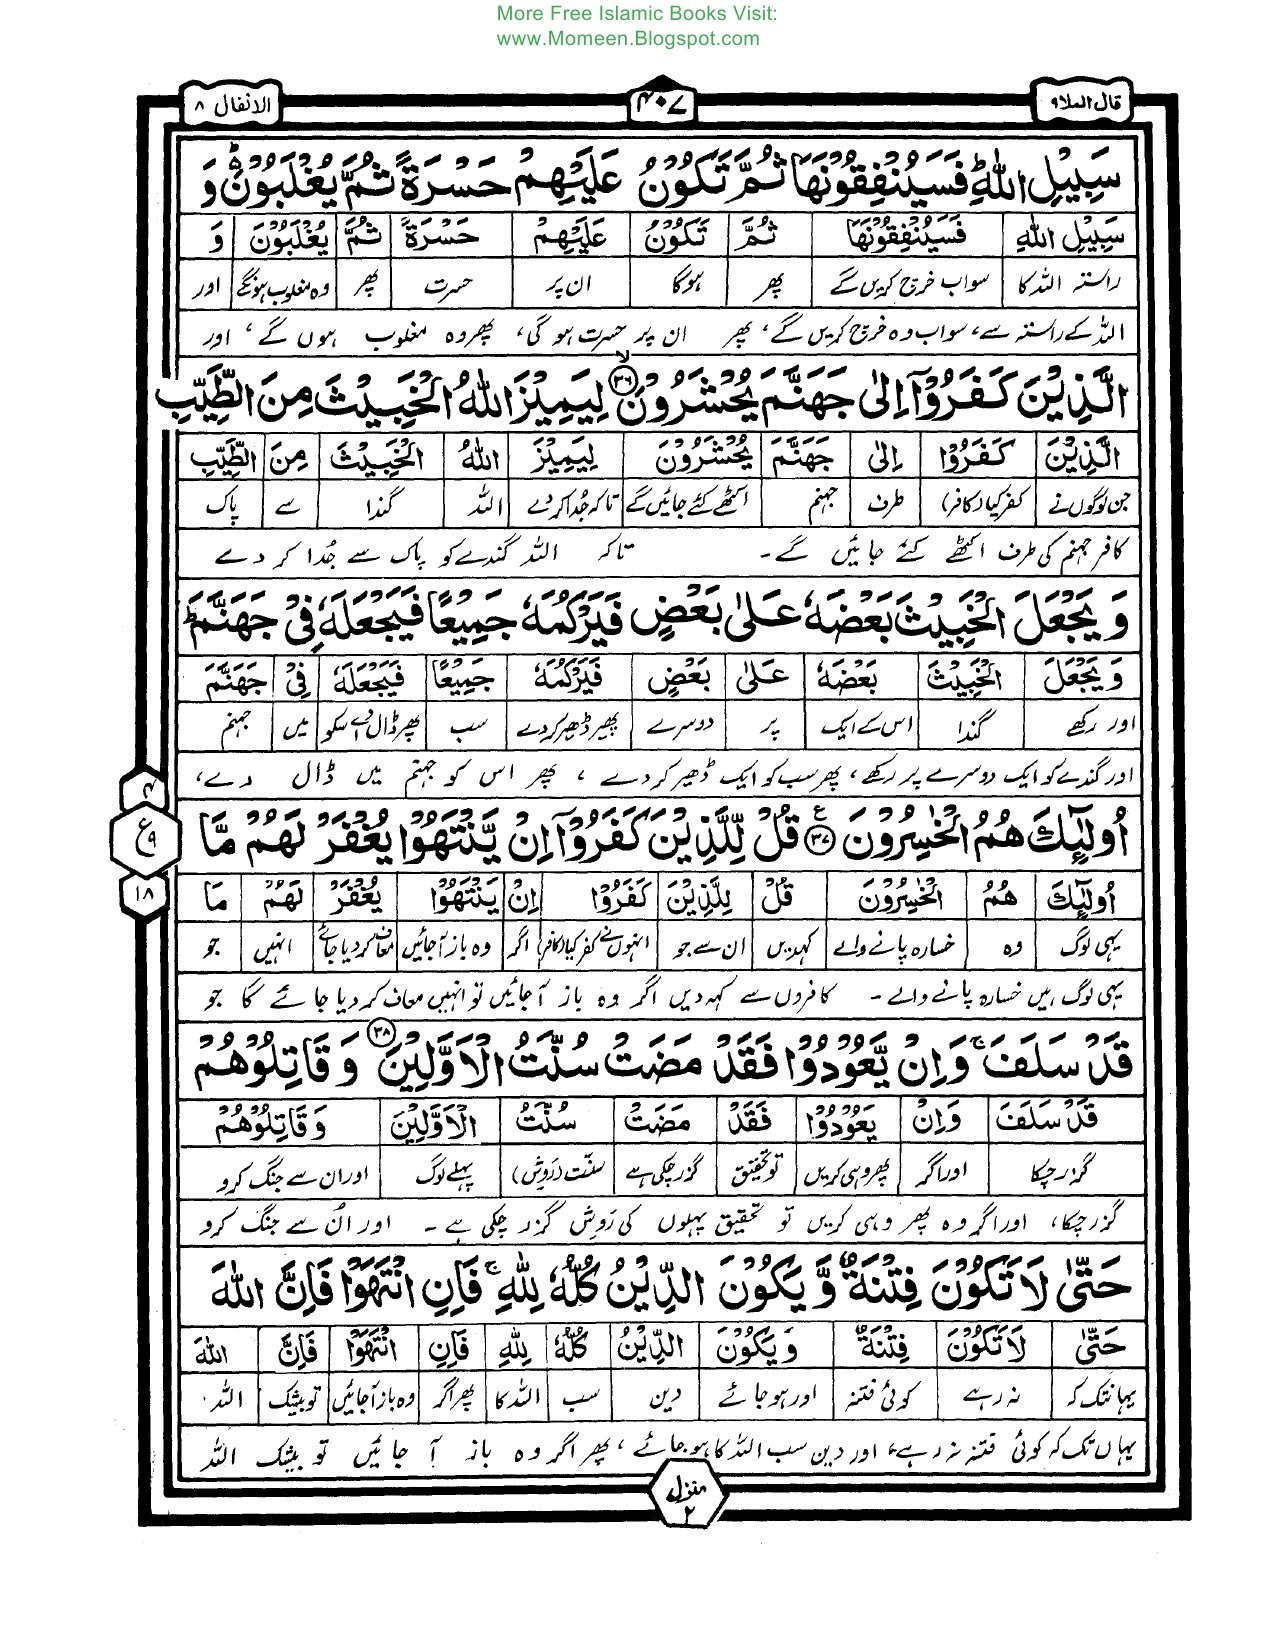 More Free Islamic Books Visit:
www.Momeen.Blogspot.com
قال الملا۹ ۴۰۷ الانفال ۸
سَبِيْلِ اللّٰهِ ؕ فَسَيُنْفِقُوْنَهَا ثُمَّ تَكُوْنُ عَلَيْهِمْ حَسْرَةً ثُمَّ يُغْلَبُوْنَ ؕ۬ وَ
سَبِيْلِ اللّٰهِ فَسَيُنْفِقُوْنَهَا ثُمَّ تَكُوْنُ عَلَيْهِمْ حَسْرَةً ثُمَّ يُغْلَبُوْنَ وَ
راستہ اللہ کا سواب خرچ کریں گے پھر ہوگا ان پر حسرت پھر وہ مغلوب ہونگے اور
اللہ کے راستہ سے، سواب وہ خرچ کریں گے، پھر ان پر حسرت ہو گی، پھر وہ مغلوب ہوں گے، اور
الَّذِيْنَ كَفَرُوْۤا اِلٰى جَهَنَّمَ يُحْشَرُوْنَ ۙ﴿۳۶﴾ لِيَمِيْزَ اللّٰهُ الْخَبِيْثَ مِنَ الطَّيِّبِ
الَّذِيْنَ كَفَرُوْا اِلٰى جَهَنَّمَ يُحْشَرُوْنَ لِيَمِيْزَ اللّٰهُ الْخَبِيْثَ مِنَ الطَّيِّبِ
جن لوگوں نے کفر کیا (کافر) طرف جہنم اکٹھے کئے جائیں گے تاکہ جُدا کر دے اللہ گندا سے پاک
کافر جہنم کی طرف اکٹھے کئے جائیں گے۔ تاکہ اللہ گندے کو پاک سے جُدا کر دے
وَيَجْعَلَ الْخَبِيْثَ بَعْضَهٗ عَلٰى بَعْضٍ فَيَرْكُمَهٗ جَمِيْعًا فَيَجْعَلَهٗ فِيْ جَهَنَّمَ ؕ
وَيَجْعَلَ الْخَبِيْثَ بَعْضَهٗ عَلٰى بَعْضٍ فَيَرْكُمَهٗ جَمِيْعًا فَيَجْعَلَهٗ فِيْ جَهَنَّمَ
اور رکھے گندا اس کے ایک پر دوسرے پھر ڈھیر کر دے سب پھر ڈال دے اسکو میں جہنم
اور گندے کو ایک دوسرے پر رکھے، پھر سب کو ایک ڈھیر کر دے، پھر اس کو جہنم میں ڈال دے،
اُولٰٓئِكَ هُمُ الْخٰسِرُوْنَ ﴿۳۷﴾ ع قُلْ لِّلَّذِيْنَ كَفَرُوْۤا اِنْ يَّنْتَهُوْا يُغْفَرْ لَهُمْ مَّا
۴ ع۹ ۱۸
اُولٰٓئِكَ هُمُ الْخٰسِرُوْنَ قُلْ لِّلَّذِيْنَ كَفَرُوْا اِنْ يَنْتَهُوْا يُغْفَرْ لَهُمْ مَا
یہی لوگ وہ خسارہ پانے والے کہدیں ان سے جو انہوں نے کفر کیا (کافر) اگر وہ باز آ جائیں معاف کر دیا جائے انہیں جو
یہی لوگ ہیں خسارہ پانے والے۔ کافروں سے کہہ دیں اگر وہ باز آ جائیں تو انہیں معاف کر دیا جائے گا جو
قَدْ سَلَفَ ۚ وَاِنْ يَّعُوْدُوْا فَقَدْ مَضَتْ سُنَّتُ الْاَوَّلِيْنَ ﴿۳۸﴾ وَقَاتِلُوْهُمْ
قَدْ سَلَفَ وَاِنْ يَعُوْدُوْا فَقَدْ مَضَتْ سُنَّتُ الْاَوَّلِيْنَ وَقَاتِلُوْهُمْ
گزر چکا اور اگر پھر وہی کریں تو تحقیق گزر چکی ہے سنّت (رَوِش) پہلے لوگ اور ان سے جنگ کرو
گزر چکا، اور اگر وہ پھر وہی کریں تو تحقیق پہلوں کی رَوِش گزر چکی ہے۔ اور اُن سے جنگ کرو
حَتّٰى لَا تَكُوْنَ فِتْنَةٌ وَّيَكُوْنَ الدِّيْنُ كُلُّهٗ لِلّٰهِ ۚ فَاِنِ انْتَهَوْا فَاِنَّ اللّٰهَ
حَتّٰى لَا تَكُوْنَ فِتْنَةٌ وَيَكُوْنَ الدِّيْنُ كُلُّهٗ لِلّٰهِ فَاِنِ انْتَهَوْا فَاِنَّ اللّٰهَ
یہانتک کہ نہ رہے کوئی فتنہ اور ہو جائے دین سب اللہ کا پھر اگر وہ باز آ جائیں تو بیشک اللہ
یہاں تک کہ کوئی فتنہ نہ رہے، اور دین سب اللہ کا ہو جائے، پھر اگر وہ باز آ جائیں تو بیشک اللہ
منزل
۲